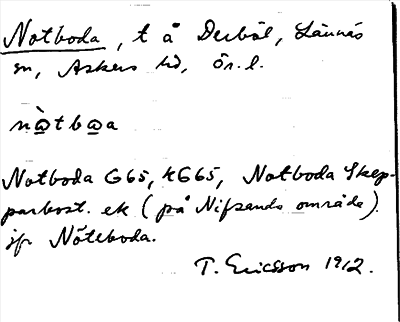 Notboda, t å Derbol, Lännäs
sn, Askers hd, Ör. l.
nò̱tbo̱a
Notboda G65, KG65, Notboda Skep-
parbost. ek (på Nifsands område).
jfr Nöteboda.
T. Ericsson 1912.